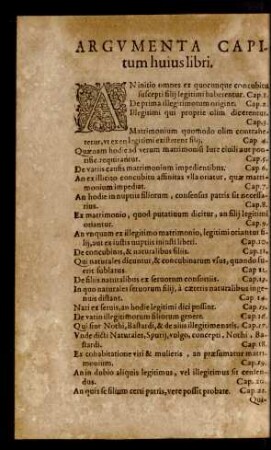 ARGVMENTA CAPI-
tum huius libri.
AN initio omnes ex quocunque concubitu
suscepti filij legitimi haberentur. Cap.1.
De prima illegitimorum origine. Cap.2.
Illegitimi qui proprie olim dicerentur.
Cap.3.
Matrimonium quomodo olim contrahe-
retur, vt ex en legitimi existerent filij. Cap.4.
Quænam hodie ad verum matrimonij iure ciuili aut pon-
tific. requirantur. Cap.5.
De varijs causis matrimonium impedientibus. Cap.6.
An ex illicito concubitu affinitas vlla oriatur, quæ matri-
monium impediat. Cap.7.
An hodie in nuptijs filiorum, consensus patris sit necessa-
rius. Cap.8.
Ex matrimonio, quod putatiuum dicitur, an filij legitimi
oriantur. Cap.9.
An vnquam ex illegitimo matrimonio, legitimi oriantur fi-
lij, aut ex iustis nuptijs minus liberi. Cap.10.
De concubinis, & naturalibus filijs. Cap.11.
Qui naturales dicantur, & concubinarum vsus, quando fu-
erit sublatus. Cap.12.
De filijs naturalibus ex seruorum consortijs. Cap.13.
In quo naturales seruorum filij, à cæteris naturalibus inge-
nuis distant. Cap.14.
Nati ex seruis, an hodie legitimi dici possint. Cap.15.
De varijs illegitimorum filiorum genere. Cap.16.
Qui sint Nothi, Bastardi, & de alijs illegitimè natis. Cap.17.
Vnde dicti Naturales, Spurij, vulgo, concepti, Nothi, Ba-
stardi. Cap.18.
Ex cohabitatione viri & mulieris, an præsumatur matri-
monium. Cap.19.
An in dubio aliquis legitimus, vel illegitimus sit censen-
dus. Cap.20.
An quis se filium certi patris, vere possit probare. Cap.21.
Qui-